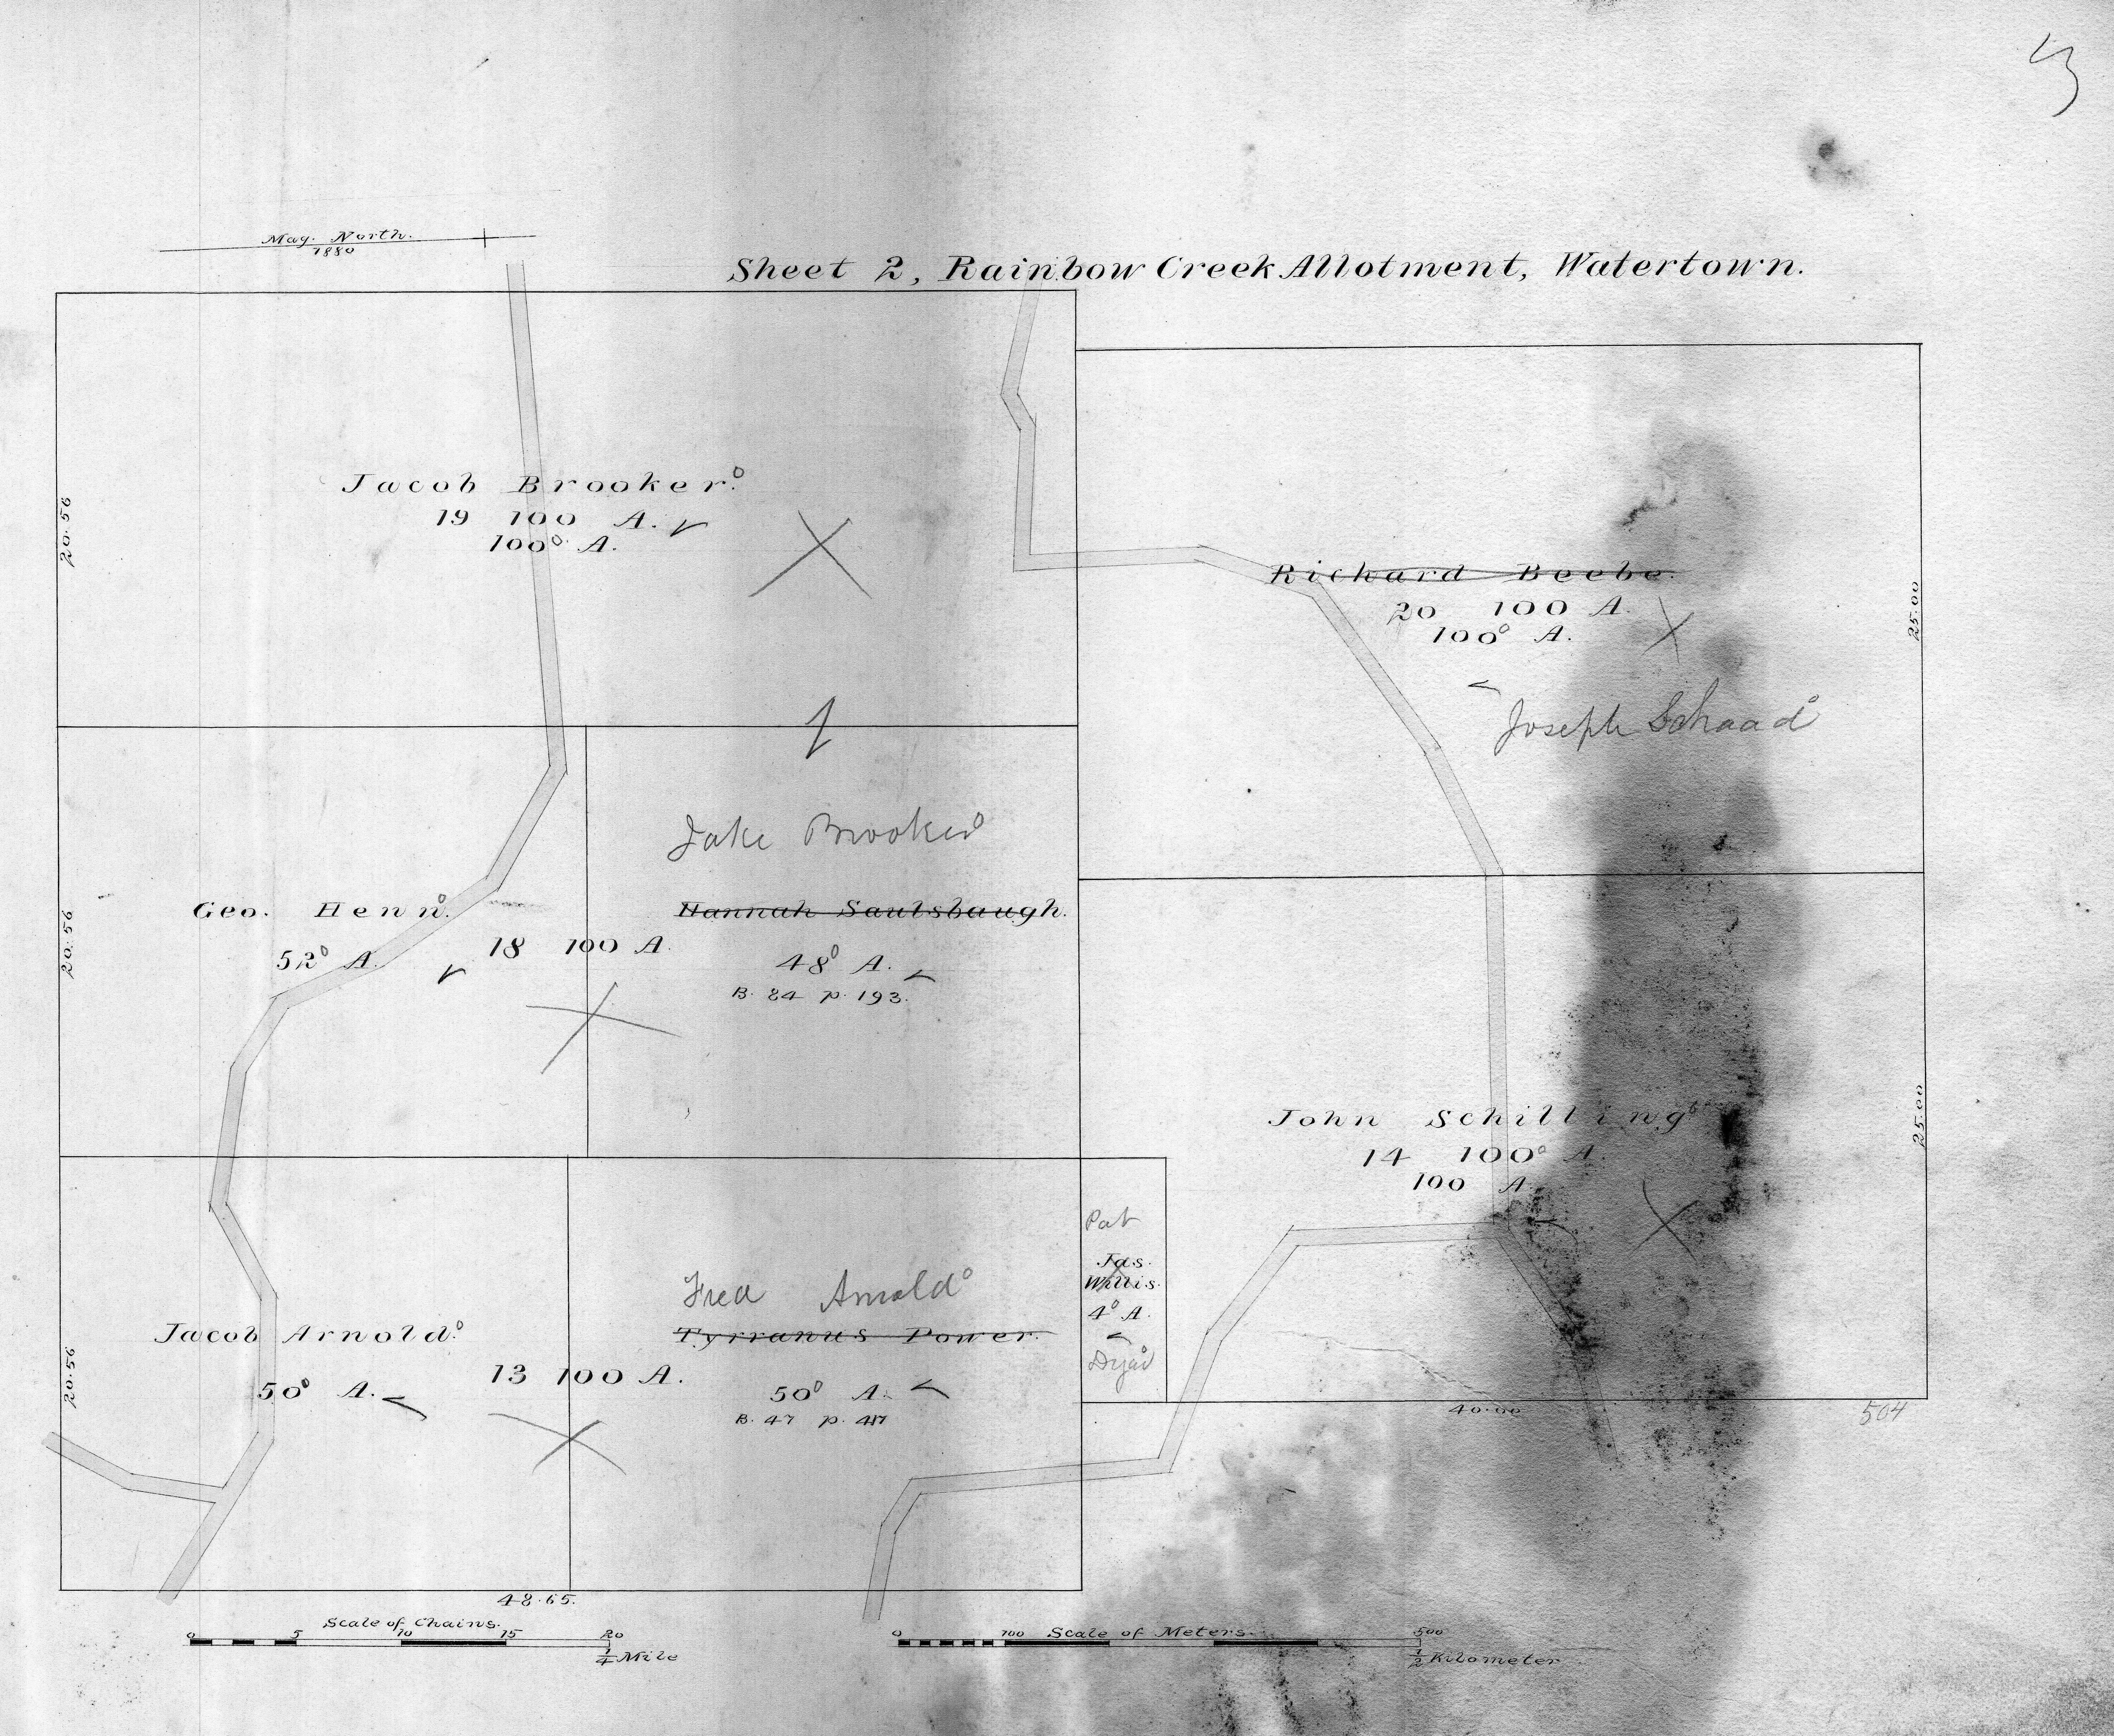 3
Mag. North.
1880
Sheet 2, Rainbow Creek Allotment, Watertown.
20.56
Jacob Brooker.
19 100 A.
100 A.
Richard Beebe.
20 100 A.
100 A.
25.00
Joseph Schaad
20.56
Geo. Henn.
52 A.
18 100 A.
Jake Brooker
Hannah Saulsbaugh.
48 A.
B. 84 p. 193.
John Schilling
14 100 A.
100 A.
25.00
20.56
Jacob Arnold.
50 A.
13 100 A.
Fred Arnold
Tyrranus Power.
50 A.
B. 47 p. 417
Pat
Jas.
Willis.
4 A.
40.00
504
48.65.
Scale of Chains.
0 5 10 15 20
1/4 Mile
Scale of Meters.
0 100 500
1/2 Kilometer